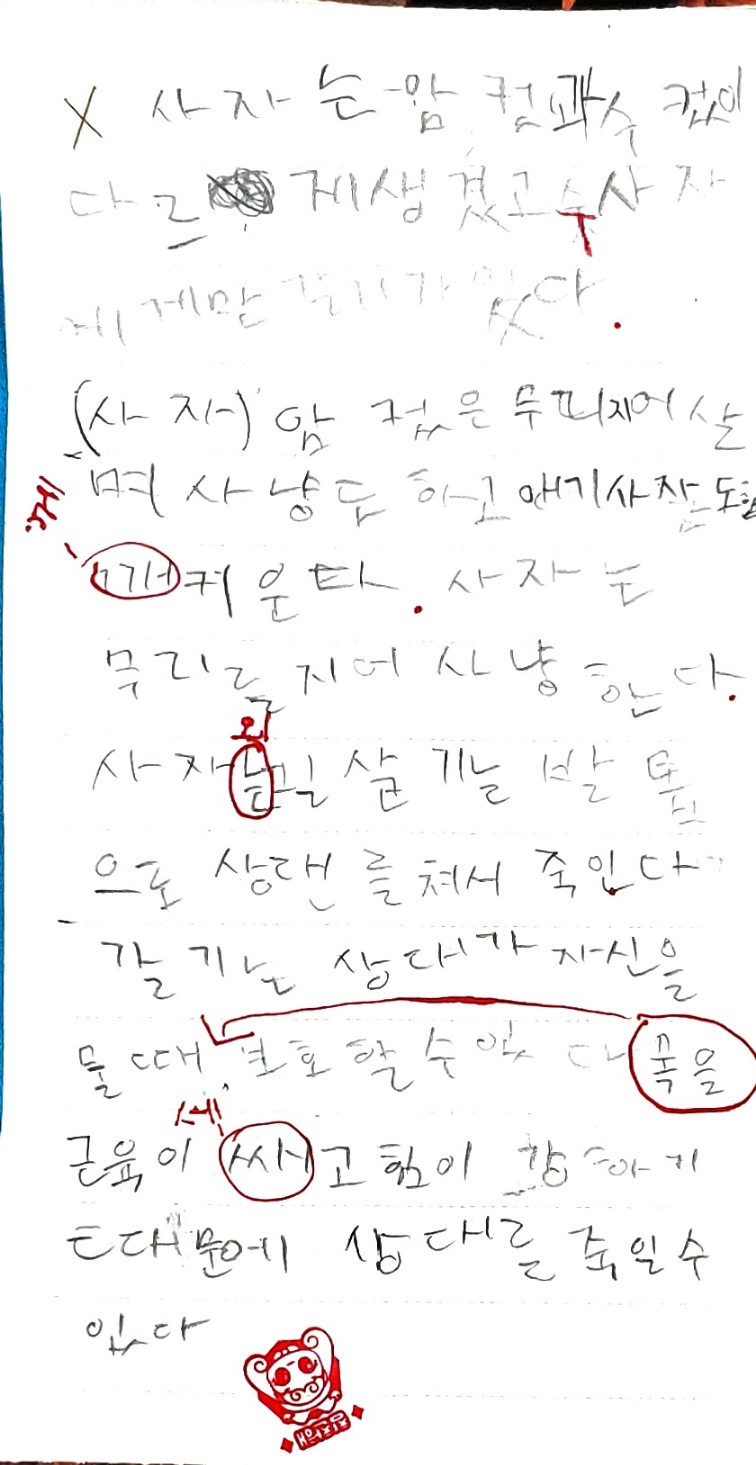 사자는 암컷과 수컷이
다르게 생겼고 수사자
에게만 갈기가 있다.
(사자) 암컷은 무리지어 살
며 사냥도 하고 애기사자도 함
께 키운다. 사자는
무리를 지어 사냥한다.
사자의 발톱
으로 상대를 쳐서 죽인다
갈기는 상대가 자신을
물때 보호할수 있다 목을
근육이 쎄고 힘이 강하기
때문에 상대를 죽일수
있다